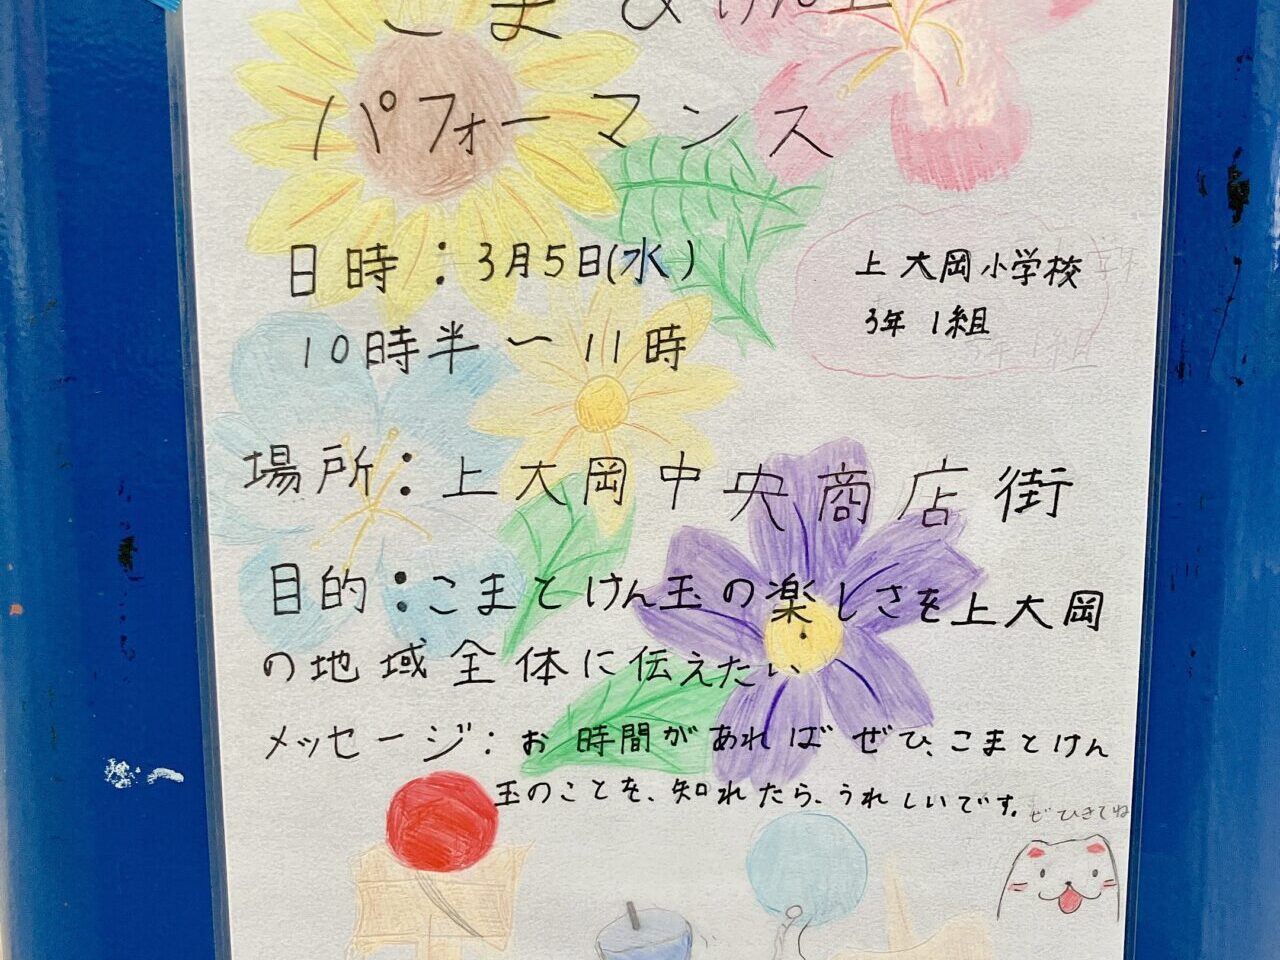 こま&けん玉
パフォーマンス
日時:3月5日(水)
10時半~11時
上大岡小学校
3年1組
場所:上大岡中央商店街
目的:こまとけん玉の楽しさを上大岡
の地域全体に伝えたい
メッセージ:お時間があればぜひ、こまとけん
玉のことを、知れたら、うれしいです。
ぜひきてね